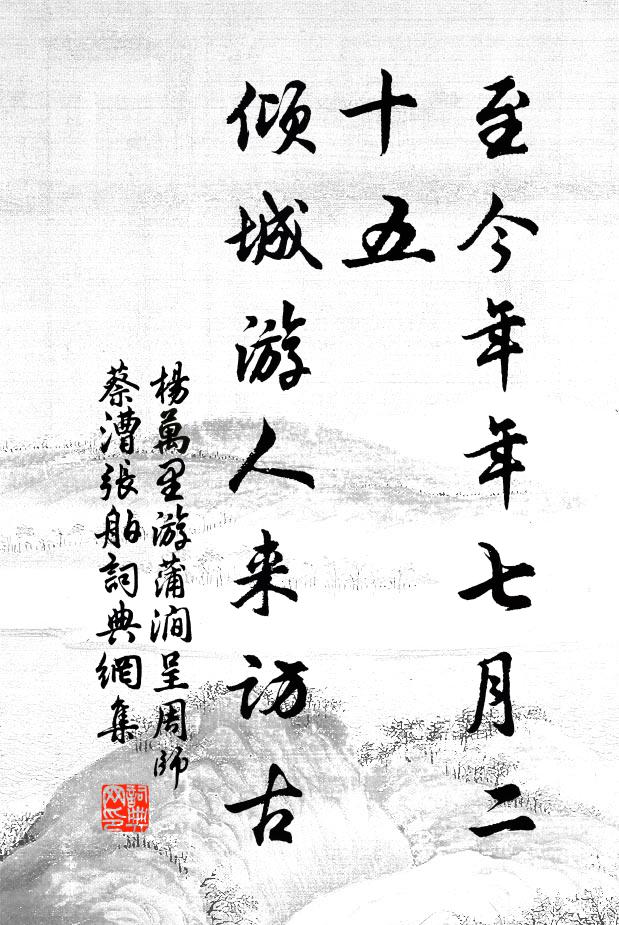 至今年年七月二
十五
倾城游人来访古
楊萬里游蒲澗呈周帅
蔡漕張舶詞典網集
詞典網印